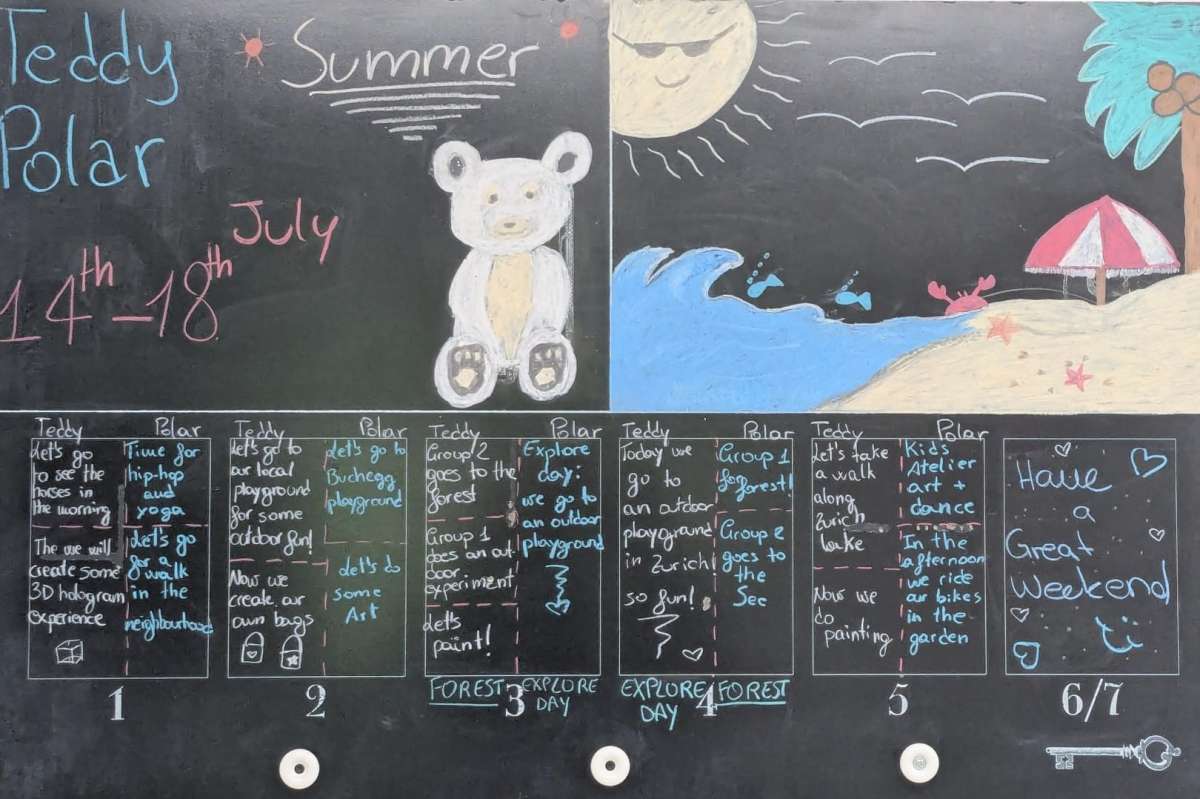 Teddy
Polar
Summer
14th-18th July
Teddy
Let's go
to see the
horses in
the morning
The we will
create some
3D hologram
experience
Polar
Time for
hip-hop
and
yoga
Let's go
for a
walk
in the
neighbourhood
1
Teddy
Let's go to
our local
playground
for some
outdoor fun!
Now we
create our
own bags
Polar
Let's go to
Buchegg
playground
Let's do
some
Art
2
Teddy
Group 2
goes to the
forest
Group 1
does an out-
door
experiment
Let's
paint!
FOREST
Polar
Explore
day:
we go to
an outdoor
playground
EXPLORE
DAY
3
Teddy
Today we
go to
an outdoor
playground
in Zurich!
so fun!
EXPLORE
DAY
Polar
Group 1
for forest!
Group 2
goes to
the
See
FOREST
4
Teddy
Let's take
a walk
along
Zurich
Lake
Now we
do
painting
Polar
Kids
Atelier
art +
dance
In the
afternoon
we ride
our bikes
in the
garden
5
Have
a
Great
Weekend
6/7